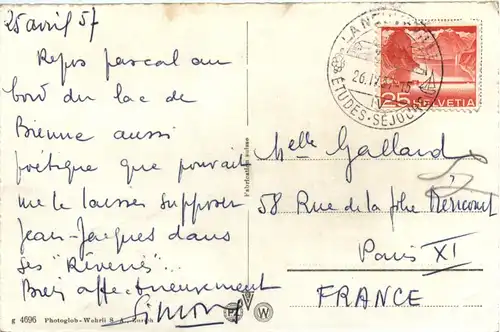 25 avril 57
Repos pascal au
bord du lac de
Bienne aussi
poétique que pouvait
me le laisser supposer
Jean-Jacques dans
ses "Rêveries"..
Bien affectueusement
Simone
g 4696 Photoglob-Wehrli S. A., Zurich
Fabrication suisse
P V W
LA NEUVEVILLE
26.IV.57-15
ÉTUDES · SÉJOUR
25 HELVETIA
Melle Galland
58 Rue de la folie Méricourt
Paris XI
FRANCE